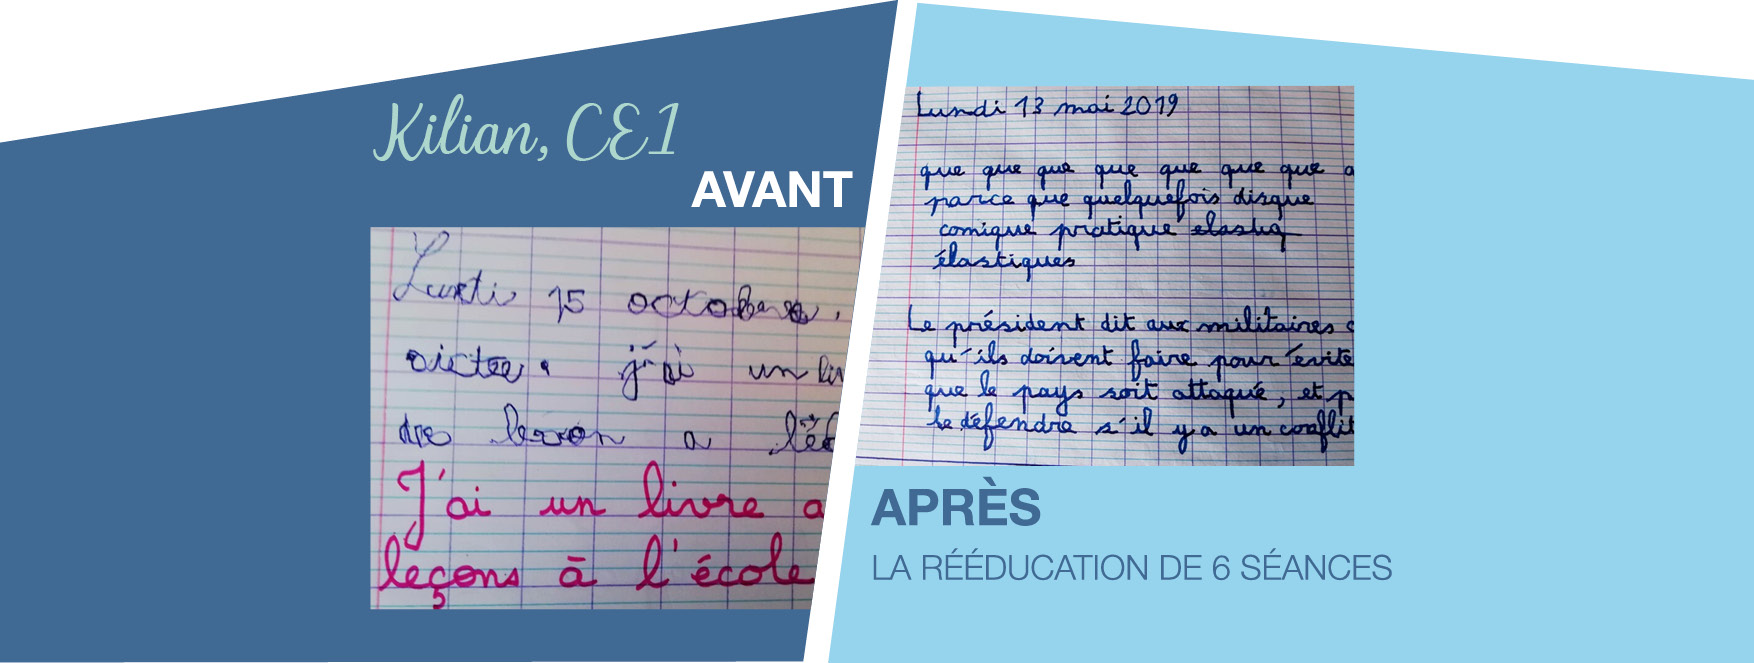 Kilian, CE1
AVANT
Lunti 15 octobere.
dictee. j'ai un liv
de leson a l'éc
J'ai un livre a
leçons à l'école
Lundi 13 mai 2019
que que que que que que que q
parce que quelquefois disque
comique pratique elastiq
élastiques
Le président dit aux militaires c
qu'ils doivent faire pour évite
que le pays soit attaqué, et p
le défendre s'il y a un conflit
APRÈS
LA RÉÉDUCATION DE 6 SÉANCES